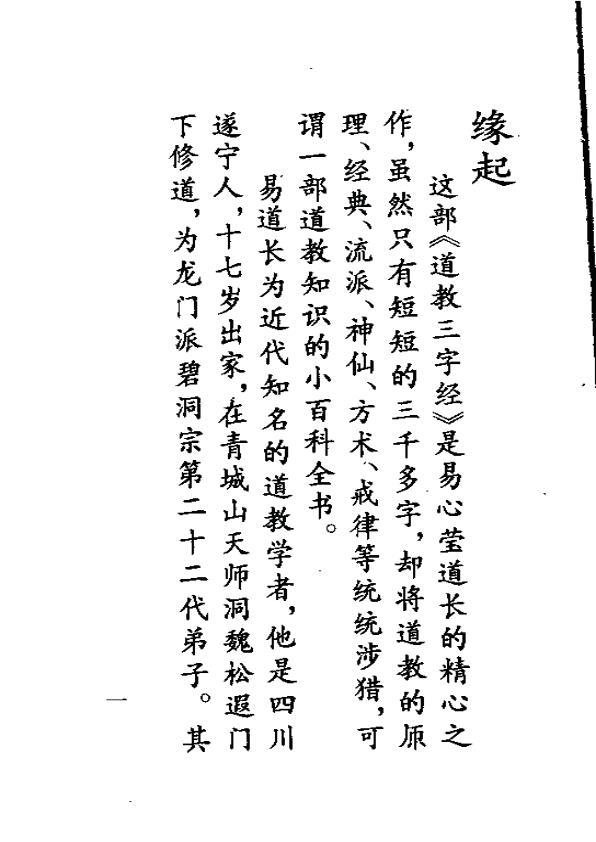 缘起
这部《道教三字经》是易心莹道长的精心之
作，虽然只有短短的三千多字，却将道教的原
理、经典、流派、神仙、方术、戒律等统统涉猎，可
谓一部道教知识的小百科全书。
易道长为近代知名的道教学者，他是四川
遂宁人，十七岁出家，在青城山天师洞魏松遐门
下修道，为龙门派碧洞宗第二十二代弟子。其
一